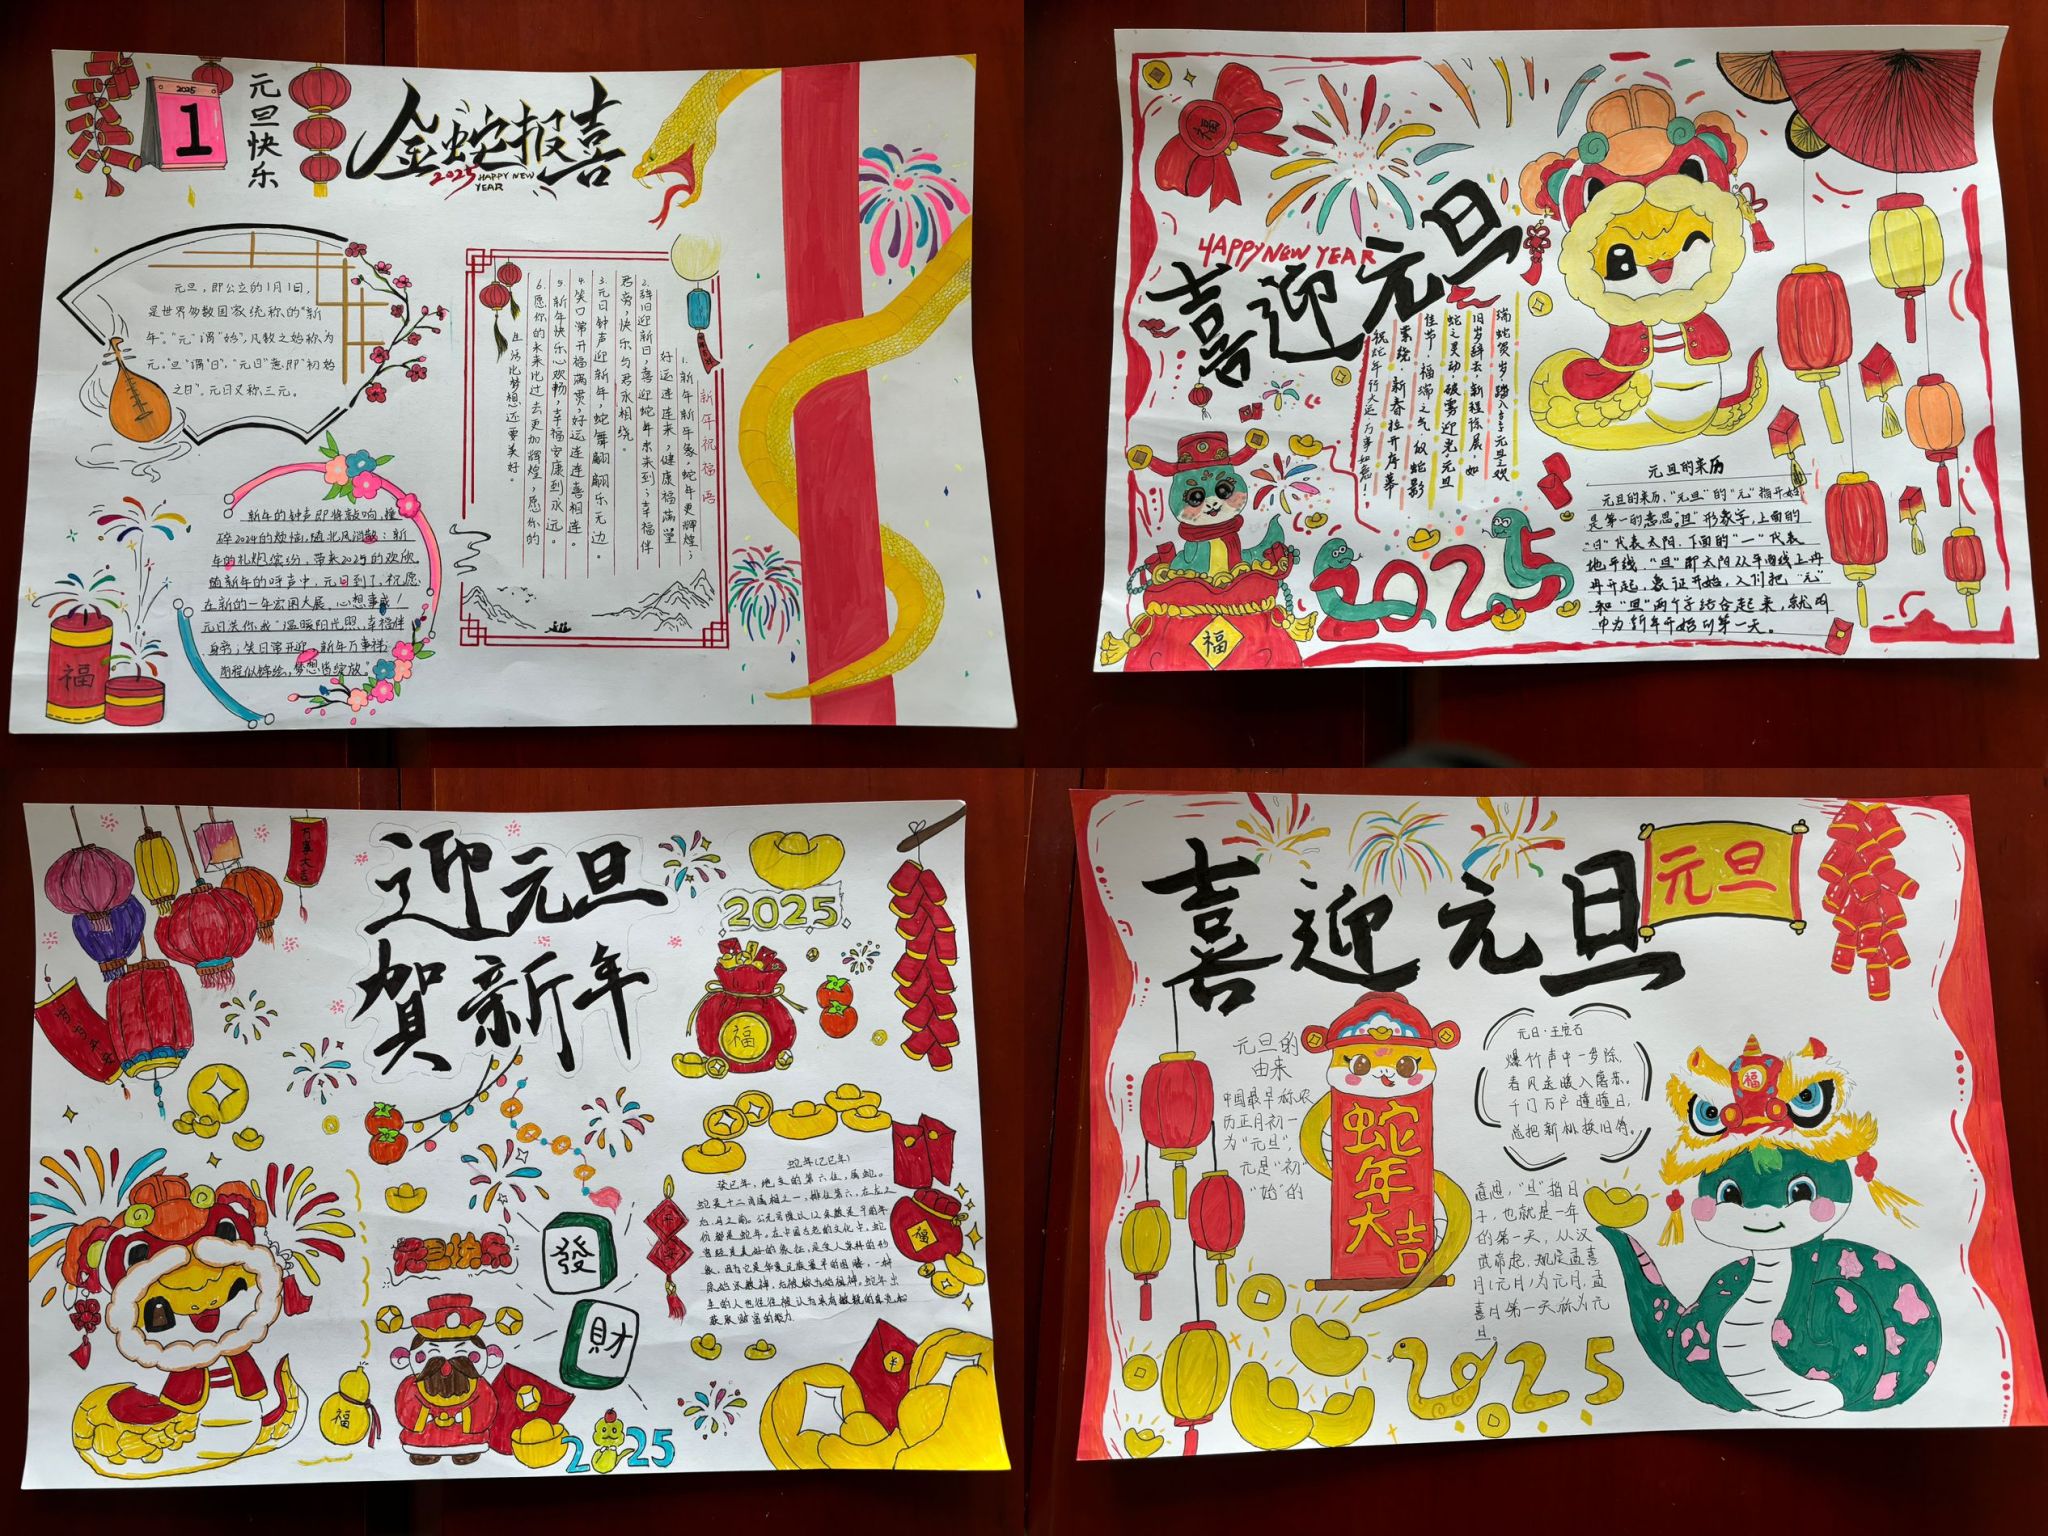 2025
1
元旦快乐
金蛇报喜
2025 HAPPY NEW
YEAR
元旦，即公立的1月1日，
是世界多数国家统称的“新
年”。“元”谓“始”，凡数之始称为
元。“旦”谓“日”，“元日”意即“初始
之日”。元日又称三元。
新年的钟声即将敲响，撞
碎2024的烦恼，随北风消散；新
年的礼炮缤纷，带来2025的欢欣
随新年的呼声中，元旦到了，祝愿
在新的一年宏图大展、心想事成！
身旁；笑口常开迎，新年万事祥
福
新年祝福语
1.新年新年象，蛇年更辉煌；
好运连连来，健康福满堂
2.辞旧迎新日，喜迎蛇年来来到；幸福伴
君旁，快乐与君永相绕。
3.元日钟声迎新年，蛇舞翩翩乐无边。
4.笑口常开福满贯，好运连连喜相连。
5.新年快乐心欢畅，幸福安康到永远。
6.愿你的未来比过去更加辉煌，愿你的
生活比梦想还要美好。
福
HAPPY NEW YEAR
喜迎元旦
瑞蛇贺岁，踏入元旦之欢
旧岁辞去，新程陈展，如
蛇之灵动，破雾迎光，元旦
佳节，福瑞之气，似蛇影
萦绕，新春拉开序幕
祝蛇年行大运万事如意！
福
2025
元旦的来历
元旦的来历，“元旦”的“元”指开始
是第一的意思。“旦”形象字，上面的
“日”代表太阳，下面的“一”代表
地平线，“旦”即太阳从平曲线上冉
冉升起，象征开始，人们把“元”
和“旦”两个字结合起来，就叫
中为新年开始的第一天。
万事大吉
迎元旦
贺新年
2025
福
元旦快乐
發
財
福
2025
蛇年(乙巳年)
癸巳年，地支的第六位，属蛇。
蛇是十二生肖属相之一，排位第六，在龙之
在中国古老的文化中，蛇
福
喜迎元旦
元旦
元旦的
由来
中国最早称农
历正月初一
为“元旦”，
元是“初”
“始”的
蛇年大吉
元日·王安石
爆竹声中一岁除，
春风送暖入屠苏。
千门万户曈曈日，
总把新桃换旧符。
意思，“旦”指日
子，也就是一年
的第一天，从汉
武帝起，规定孟喜
月(元月)为元月，孟
喜月第一天称为元
旦。
福
2025